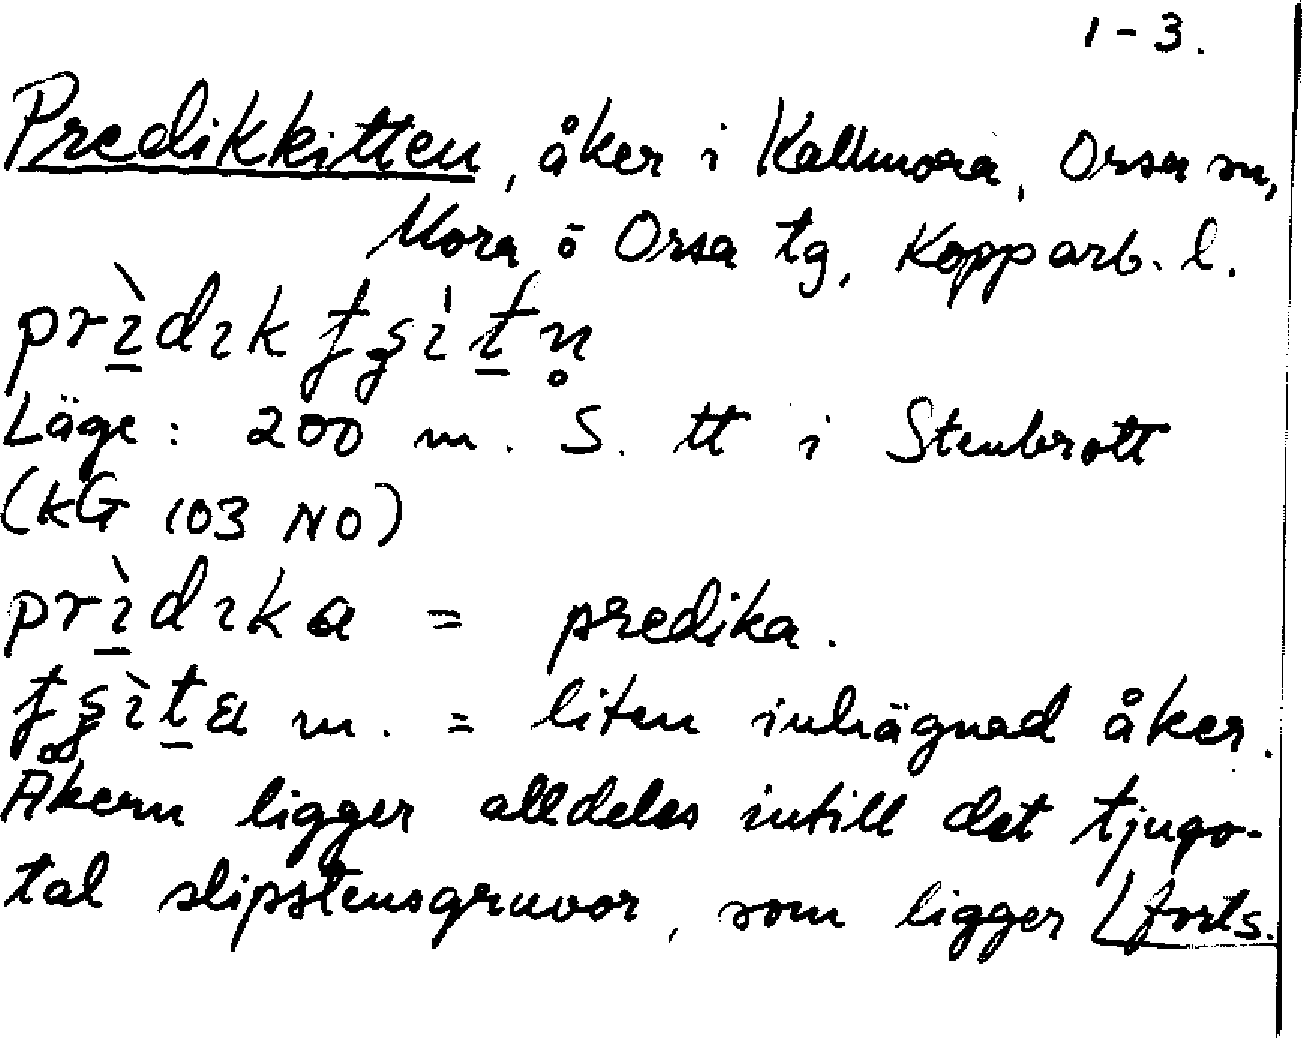 1-3.
Predikkitten, åker i Kallmora, Orsa sn,
Mora o Orsa tg, Kopparb. l.
Läge: 200 m. S. tt i Stenbrott
(kG 103 NO)
= predika.
m. = liten inhägnad åker.
Åkern ligger alldeles intill det tjugo-
tal slipstensgruvor, som ligger forts.